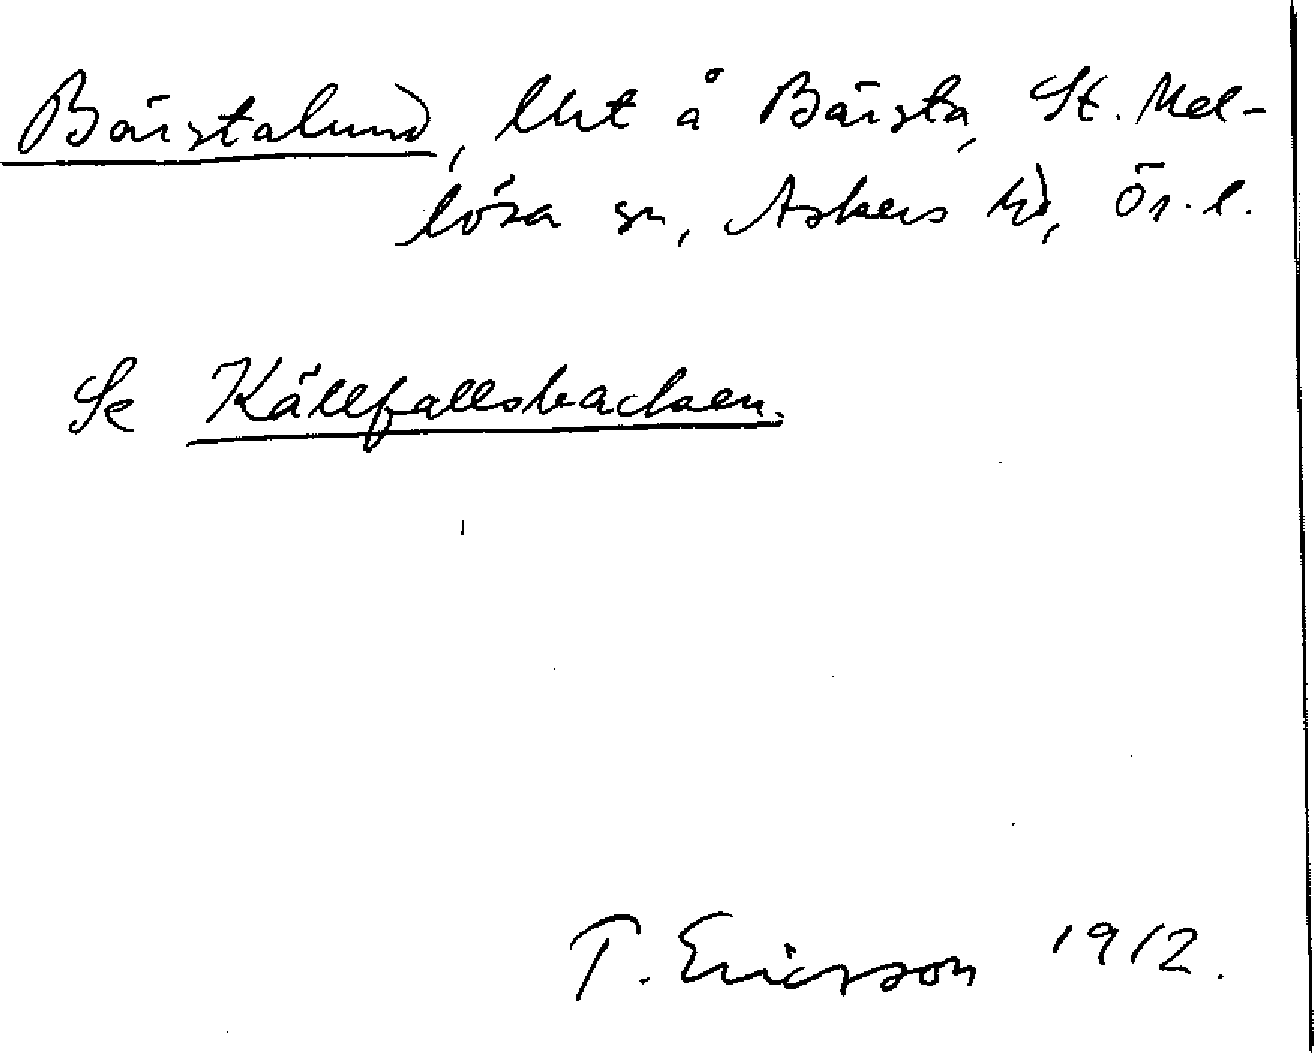 Bärstalund, lht å Bärsta, St. Mel-
lösa sn, Askers hd, Ör. l.
Se Källfallsbacken.
T. Ericsson 1912.